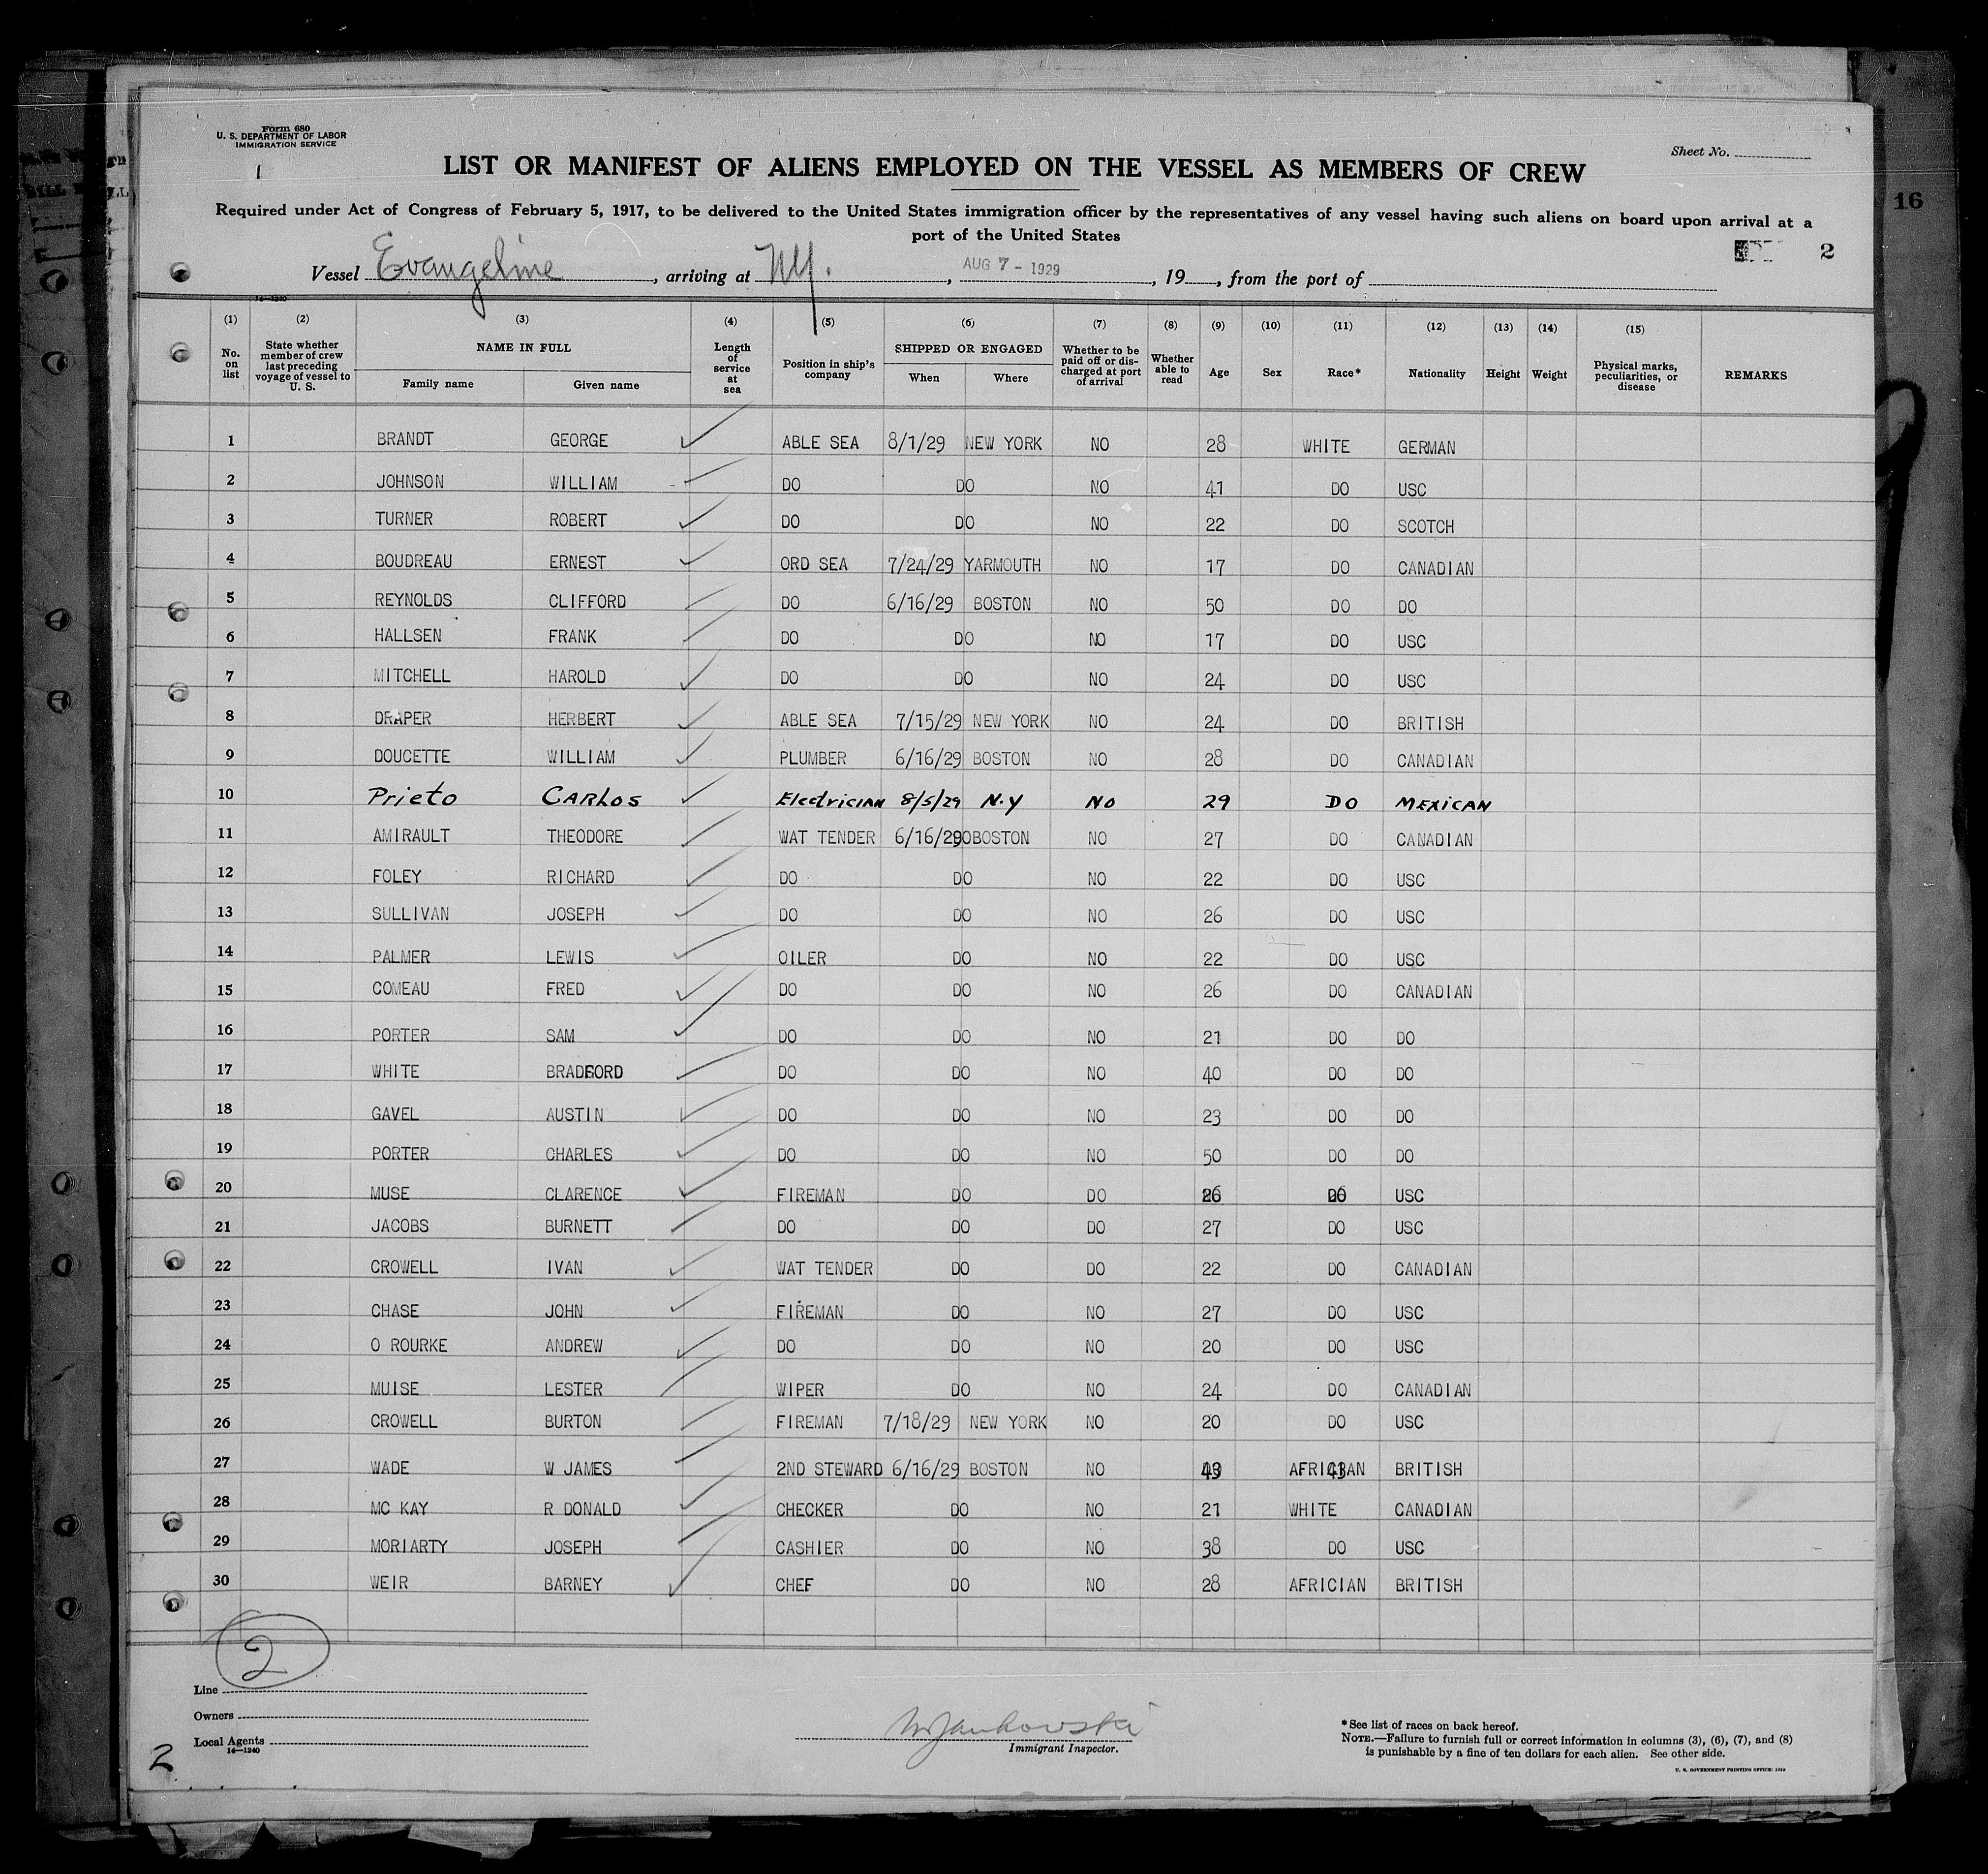 Form 680
U. S. DEPARTMENT OF LABOR
IMMIGRATION SERVICE
1
Sheet No.
LIST OR MANIFEST OF ALIENS EMPLOYED ON THE VESSEL AS MEMBERS OF CREW
16
Required under Act of Congress of February 5, 1917, to be delivered to the United States immigration officer by the representatives of any vessel having such aliens on board upon arrival at a
port of the United States
2
Vessel Evangeline, arriving at NY., AUG 7 - 1929, 19, from the port of
14—1240
(1) (2) (3) (4) (5) (6) (7) (8) (9) (10) (11) (12) (13) (14) (15)
No. on list State whether member of crew last preceding voyage of vessel to U. S. NAME IN FULL Family name Given name Length of service at sea Position in ship's company SHIPPED OR ENGAGED When Where Whether to be paid off or discharged at port of arrival Whether able to read Age Sex Race* Nationality Height Weight Physical marks, peculiarities, or disease REMARKS
1 BRANDT GEORGE ABLE SEA 8/1/29 NEW YORK NO 28 WHITE GERMAN
2 JOHNSON WILLIAM DO DO NO 41 DO USC
3 TURNER ROBERT DO DO NO 22 DO SCOTCH
4 BOUDREAU ERNEST ORD SEA 7/24/29 YARMOUTH NO 17 DO CANADIAN
5 REYNOLDS CLIFFORD DO 6/16/29 BOSTON NO 50 DO DO
6 HALLSEN FRANK DO DO NO 17 DO USC
7 MITCHELL HAROLD DO DO NO 24 DO USC
8 DRAPER HERBERT ABLE SEA 7/15/29 NEW YORK NO 24 DO BRITISH
9 DOUCETTE WILLIAM PLUMBER 6/16/29 BOSTON NO 28 DO CANADIAN
10 Prieto CARLOS Electrician 8/5/29 N.Y NO 29 DO MEXICAN
11 AMIRAULT THEODORE WAT TENDER 6/16/29 BOSTON NO 27 DO CANADIAN
12 FOLEY RICHARD DO DO NO 22 DO USC
13 SULLIVAN JOSEPH DO DO NO 26 DO USC
14 PALMER LEWIS OILER DO NO 22 DO USC
15 COMEAU FRED DO DO NO 26 DO CANADIAN
16 PORTER SAM DO DO NO 21 DO DO
17 WHITE BRADFORD DO DO NO 40 DO DO
18 GAVEL AUSTIN DO DO NO 23 DO DO
19 PORTER CHARLES DO DO NO 50 DO DO
20 MUSE CLARENCE FIREMAN DO DO 26 DO USC
21 JACOBS BURNETT DO DO DO 27 DO USC
22 CROWELL IVAN WAT TENDER DO DO 22 DO CANADIAN
23 CHASE JOHN FIREMAN DO NO 27 DO USC
24 O ROURKE ANDREW DO DO NO 20 DO USC
25 MUISE LESTER WIPER DO NO 24 DO CANADIAN
26 CROWELL BURTON FIREMAN 7/18/29 NEW YORK NO 20 DO USC
27 WADE W JAMES 2ND STEWARD 6/16/29 BOSTON NO 43 AFRICIAN BRITISH
28 MC KAY R DONALD CHECKER DO NO 21 WHITE CANADIAN
29 MORIARTY JOSEPH CASHIER DO NO 38 DO USC
30 WEIR BARNEY CHEF DO NO 28 AFRICIAN BRITISH
2
Line
Owners
Local Agents
14—1240
2
Immigrant Inspector.
*See list of races on back hereof.
NOTE.—Failure to furnish full or correct information in columns (3), (6), (7), and (8)
is punishable by a fine of ten dollars for each alien. See other side.